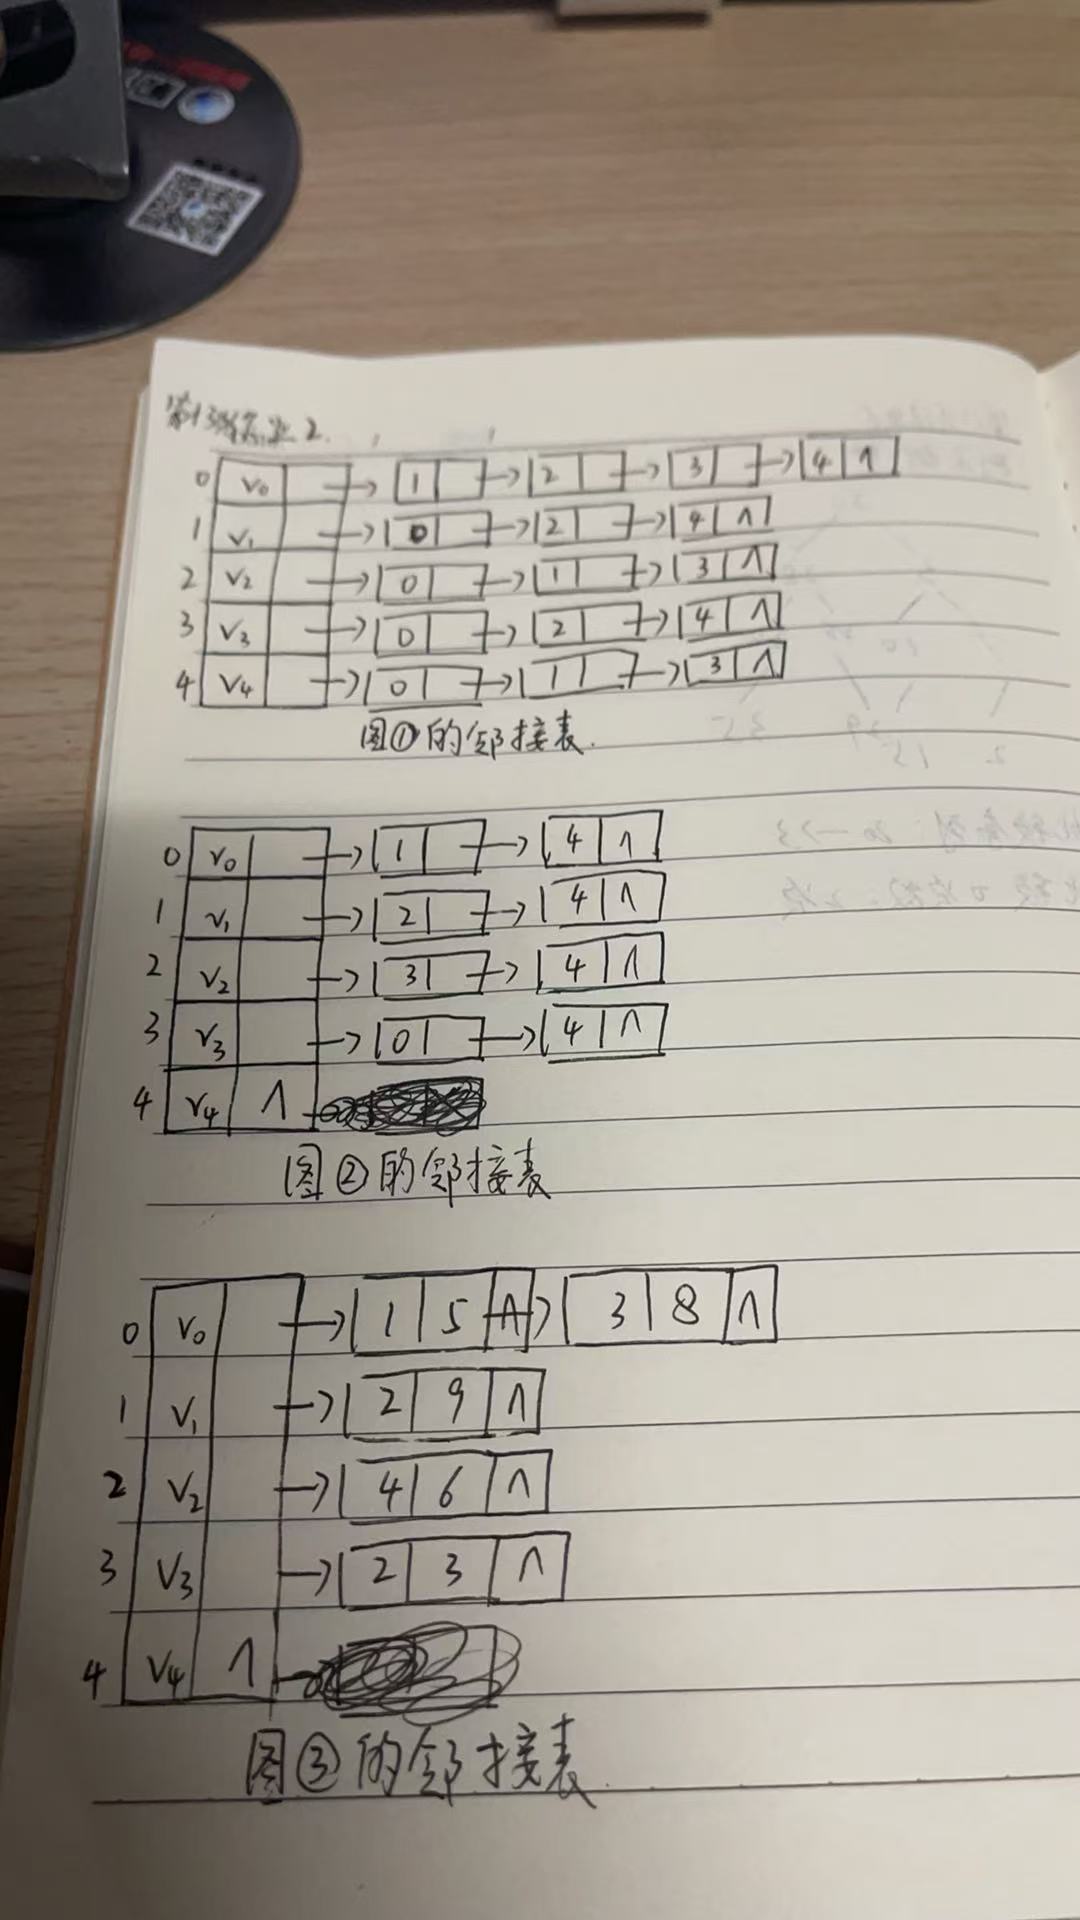 2.
0 V0 → 1 → 2 → 3 → 4 ∧
1 V1 → 0 → 2 → 4 ∧
2 V2 → 0 → 1 → 3 ∧
3 V3 → 0 → 2 → 4 ∧
4 V4 → 0 → 1 → 3 ∧
图①的邻接表.
0 V0 → 1 → 4 ∧
1 V1 → 2 → 4 ∧
2 V2 → 3 → 4 ∧
3 V3 → 0 → 4 ∧
4 V4 ∧
图②的邻接表
0 V0 → 1 5 ∧ → 3 8 ∧
1 V1 → 2 9 ∧
2 V2 → 4 6 ∧
3 V3 → 2 3 ∧
4 V4 ∧
图③的邻接表.